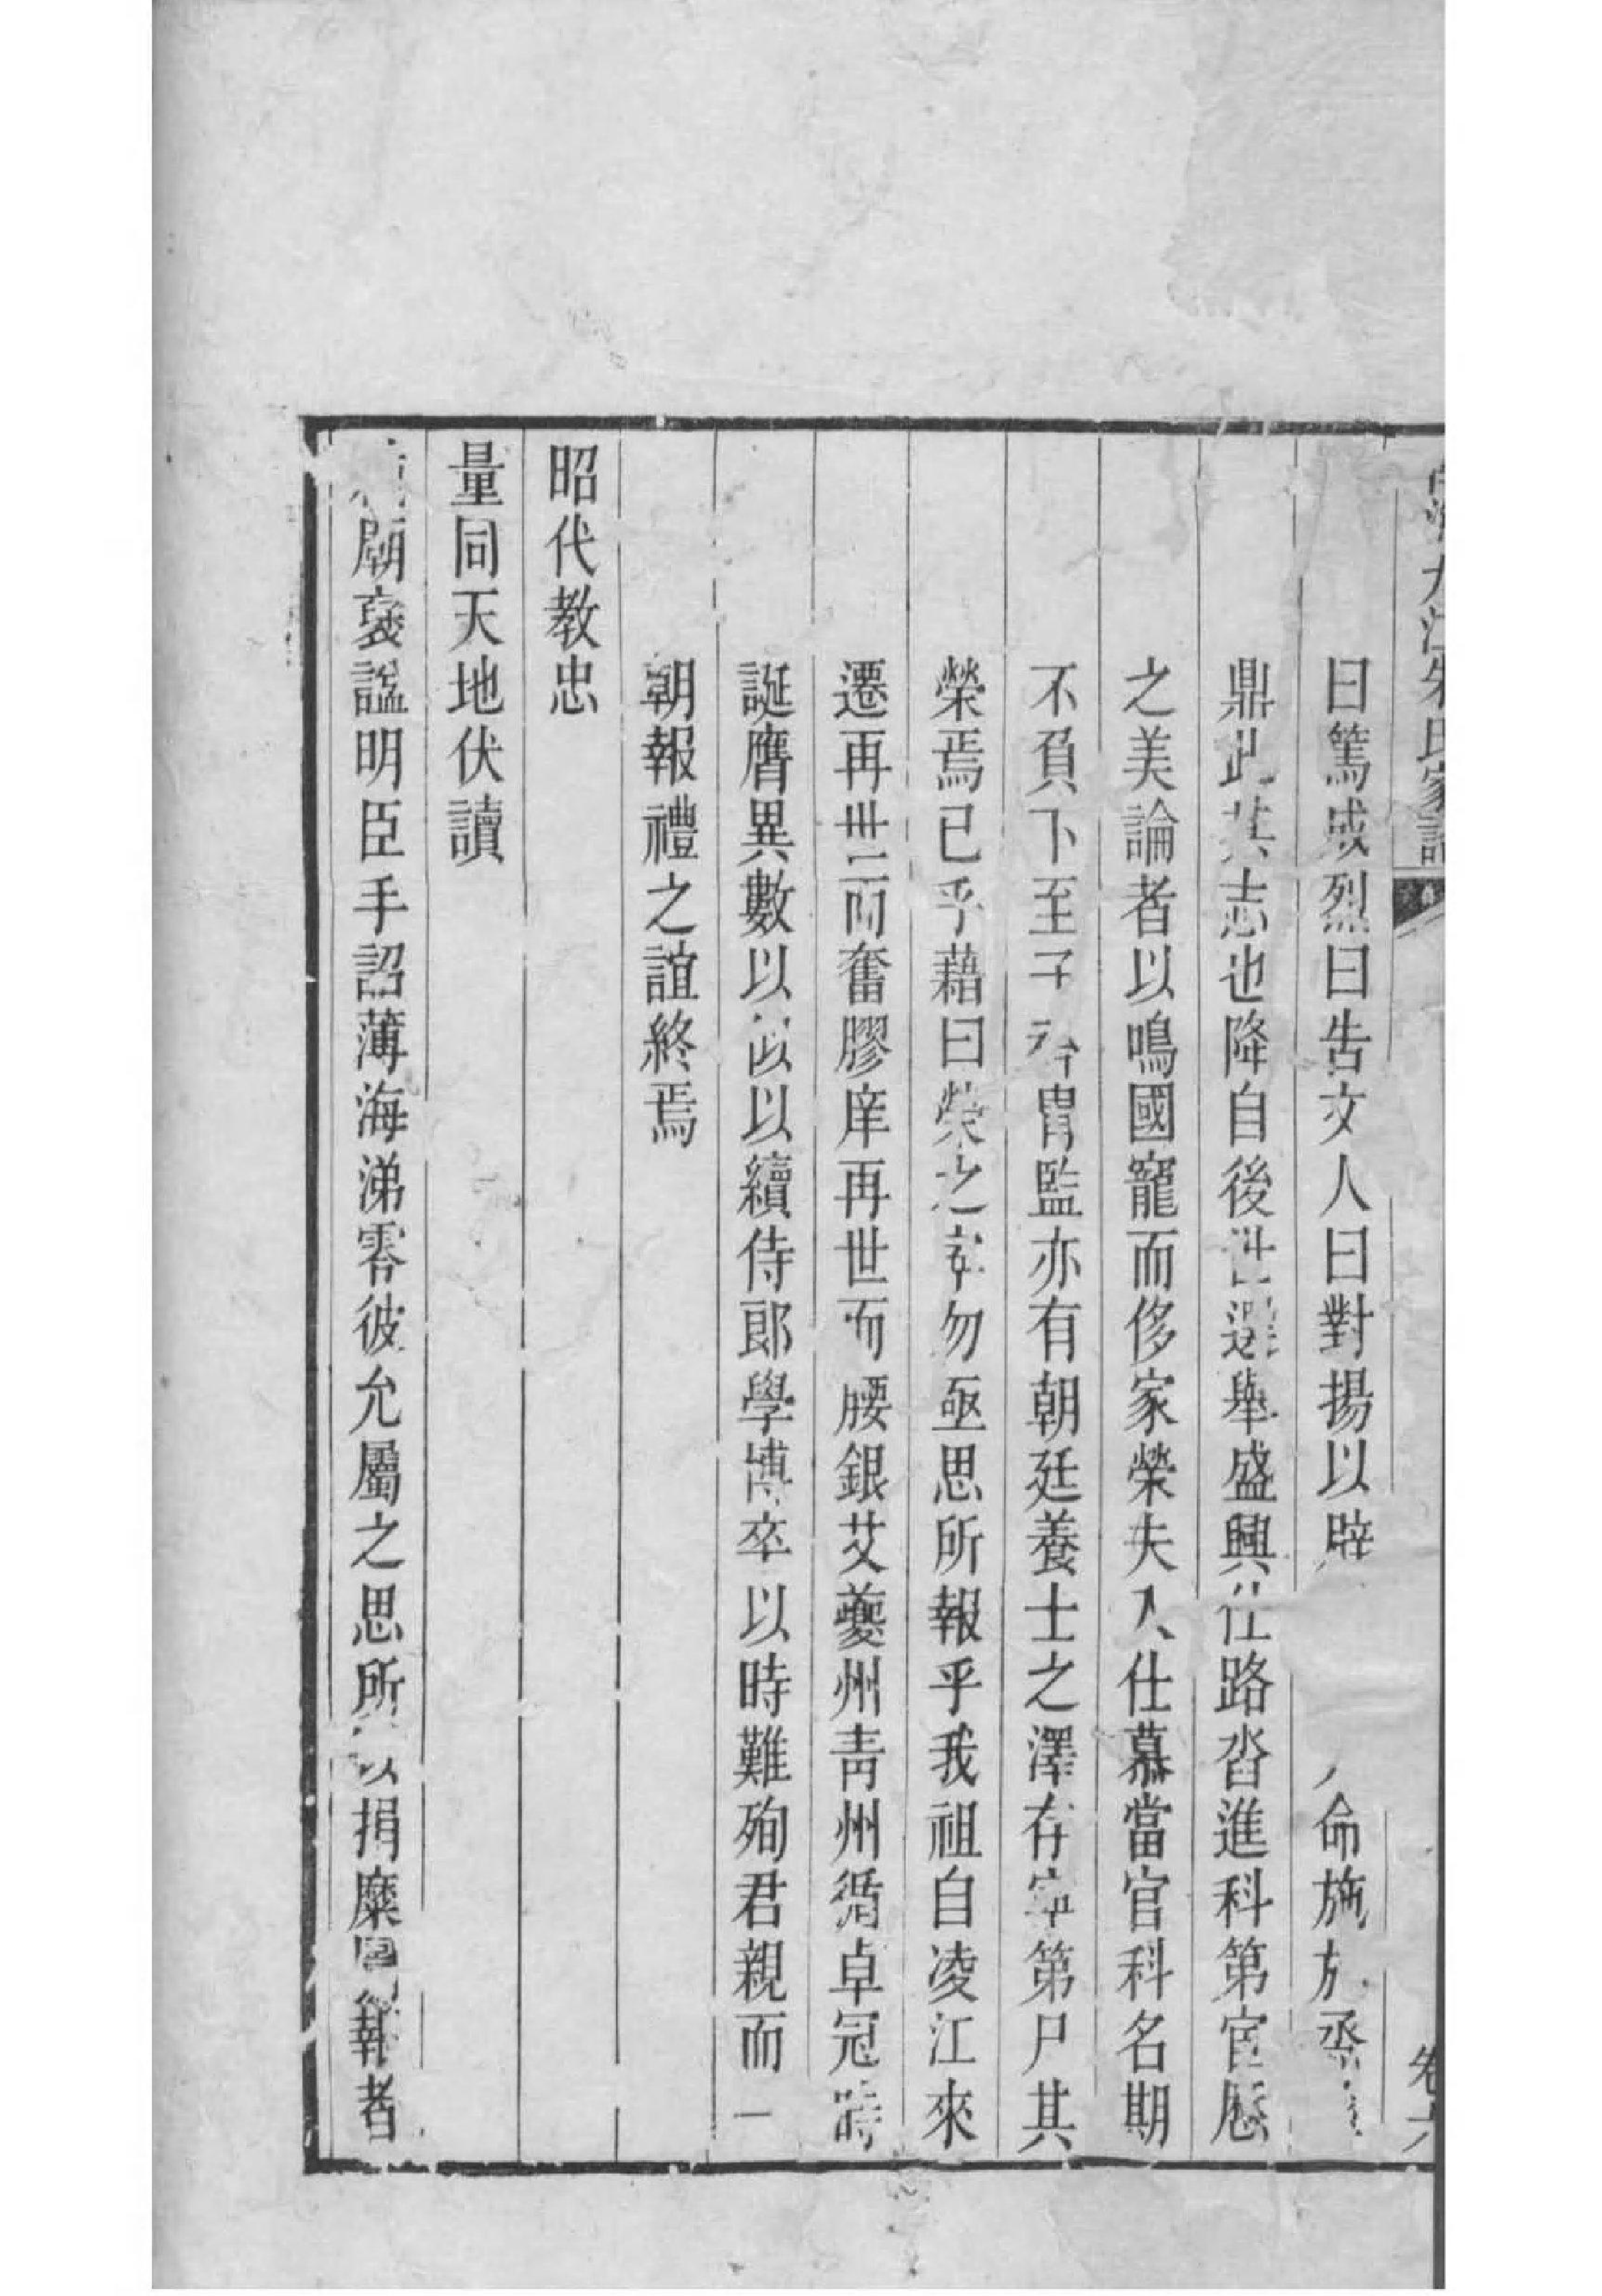 南海九江朱氏家譜 卷六
曰篤烕烈曰告文人曰對揚以辟 命施于烝彝
鼎此其志也降自後世選舉盛興仕路沓進科第宦歷
之美論者以鳴國寵而侈家榮夫入仕慕當官科名期
不負下至子 胄監亦有朝廷養士之澤存寧第尸其
榮焉已乎藉曰榮之寧勿亟思所報乎我祖自凌江來
遷再世而奮膠庠再世而腰銀艾夔州青州循卓冠時
誕膺異數以 以續侍郎學博卒以時難殉君親而一
朝報禮之誼終焉
昭代教忠
量同天地伏讀
廟褒諡明臣手詔薄海涕零彼允屬之思所以捐糜圖報者